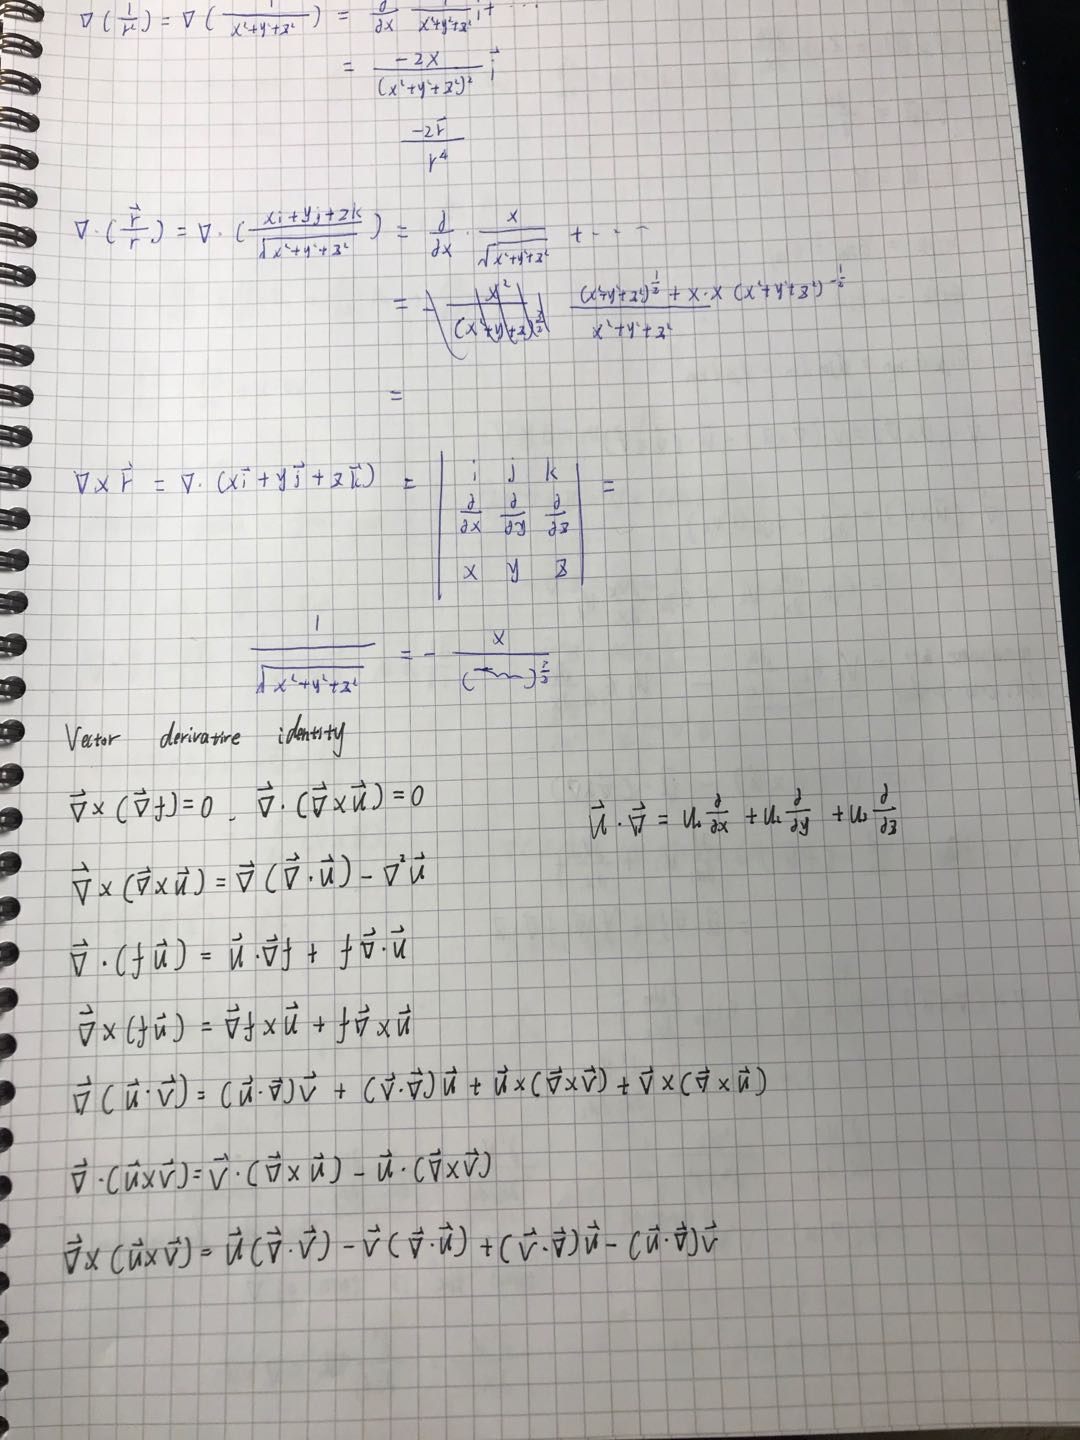 ∇(1/r²) = ∇(1/(x²+y²+z²)) = ∂/∂x 1/(x²+y²+z²) i + ...
= -2x/(x²+y²+z²)² i⃗
-2r⃗/r⁴
∇·(r⃗/r) = ∇·((xi+yj+zk)/√(x²+y²+z²)) = ∂/∂x · x/√(x²+y²+z²) + ...
= ((x²+y²+z²)^(1/2) + x·x (x²+y²+z²)^(-1/2))/(x²+y²+z²)
=
∇×r⃗ = ∇·(xi⃗+yj⃗+zk⃗) = | i j k ; ∂/∂x ∂/∂y ∂/∂z ; x y z | =
1/√(x²+y²+z²) = - x/( )^(3/2)
Vector derivative identity
∇⃗×(∇⃗f)=0, ∇⃗·(∇⃗×u⃗)=0
u⃗·∇⃗ = u₁ ∂/∂x + u₂ ∂/∂y + u₃ ∂/∂z
∇⃗×(∇⃗×u⃗) = ∇⃗(∇⃗·u⃗) - ∇²u⃗
∇⃗·(fu⃗) = u⃗·∇⃗f + f∇⃗·u⃗
∇⃗×(fu⃗) = ∇⃗f×u⃗ + f∇⃗×u⃗
∇⃗(u⃗·v⃗) = (u⃗·∇⃗)v⃗ + (v⃗·∇⃗)u⃗ + u⃗×(∇⃗×v⃗) + v⃗×(∇⃗×u⃗)
∇⃗·(u⃗×v⃗) = v⃗·(∇⃗×u⃗) - u⃗·(∇⃗×v⃗)
∇⃗×(u⃗×v⃗) = u⃗(∇⃗·v⃗) - v⃗(∇⃗·u⃗) + (v⃗·∇⃗)u⃗ - (u⃗·∇⃗)v⃗